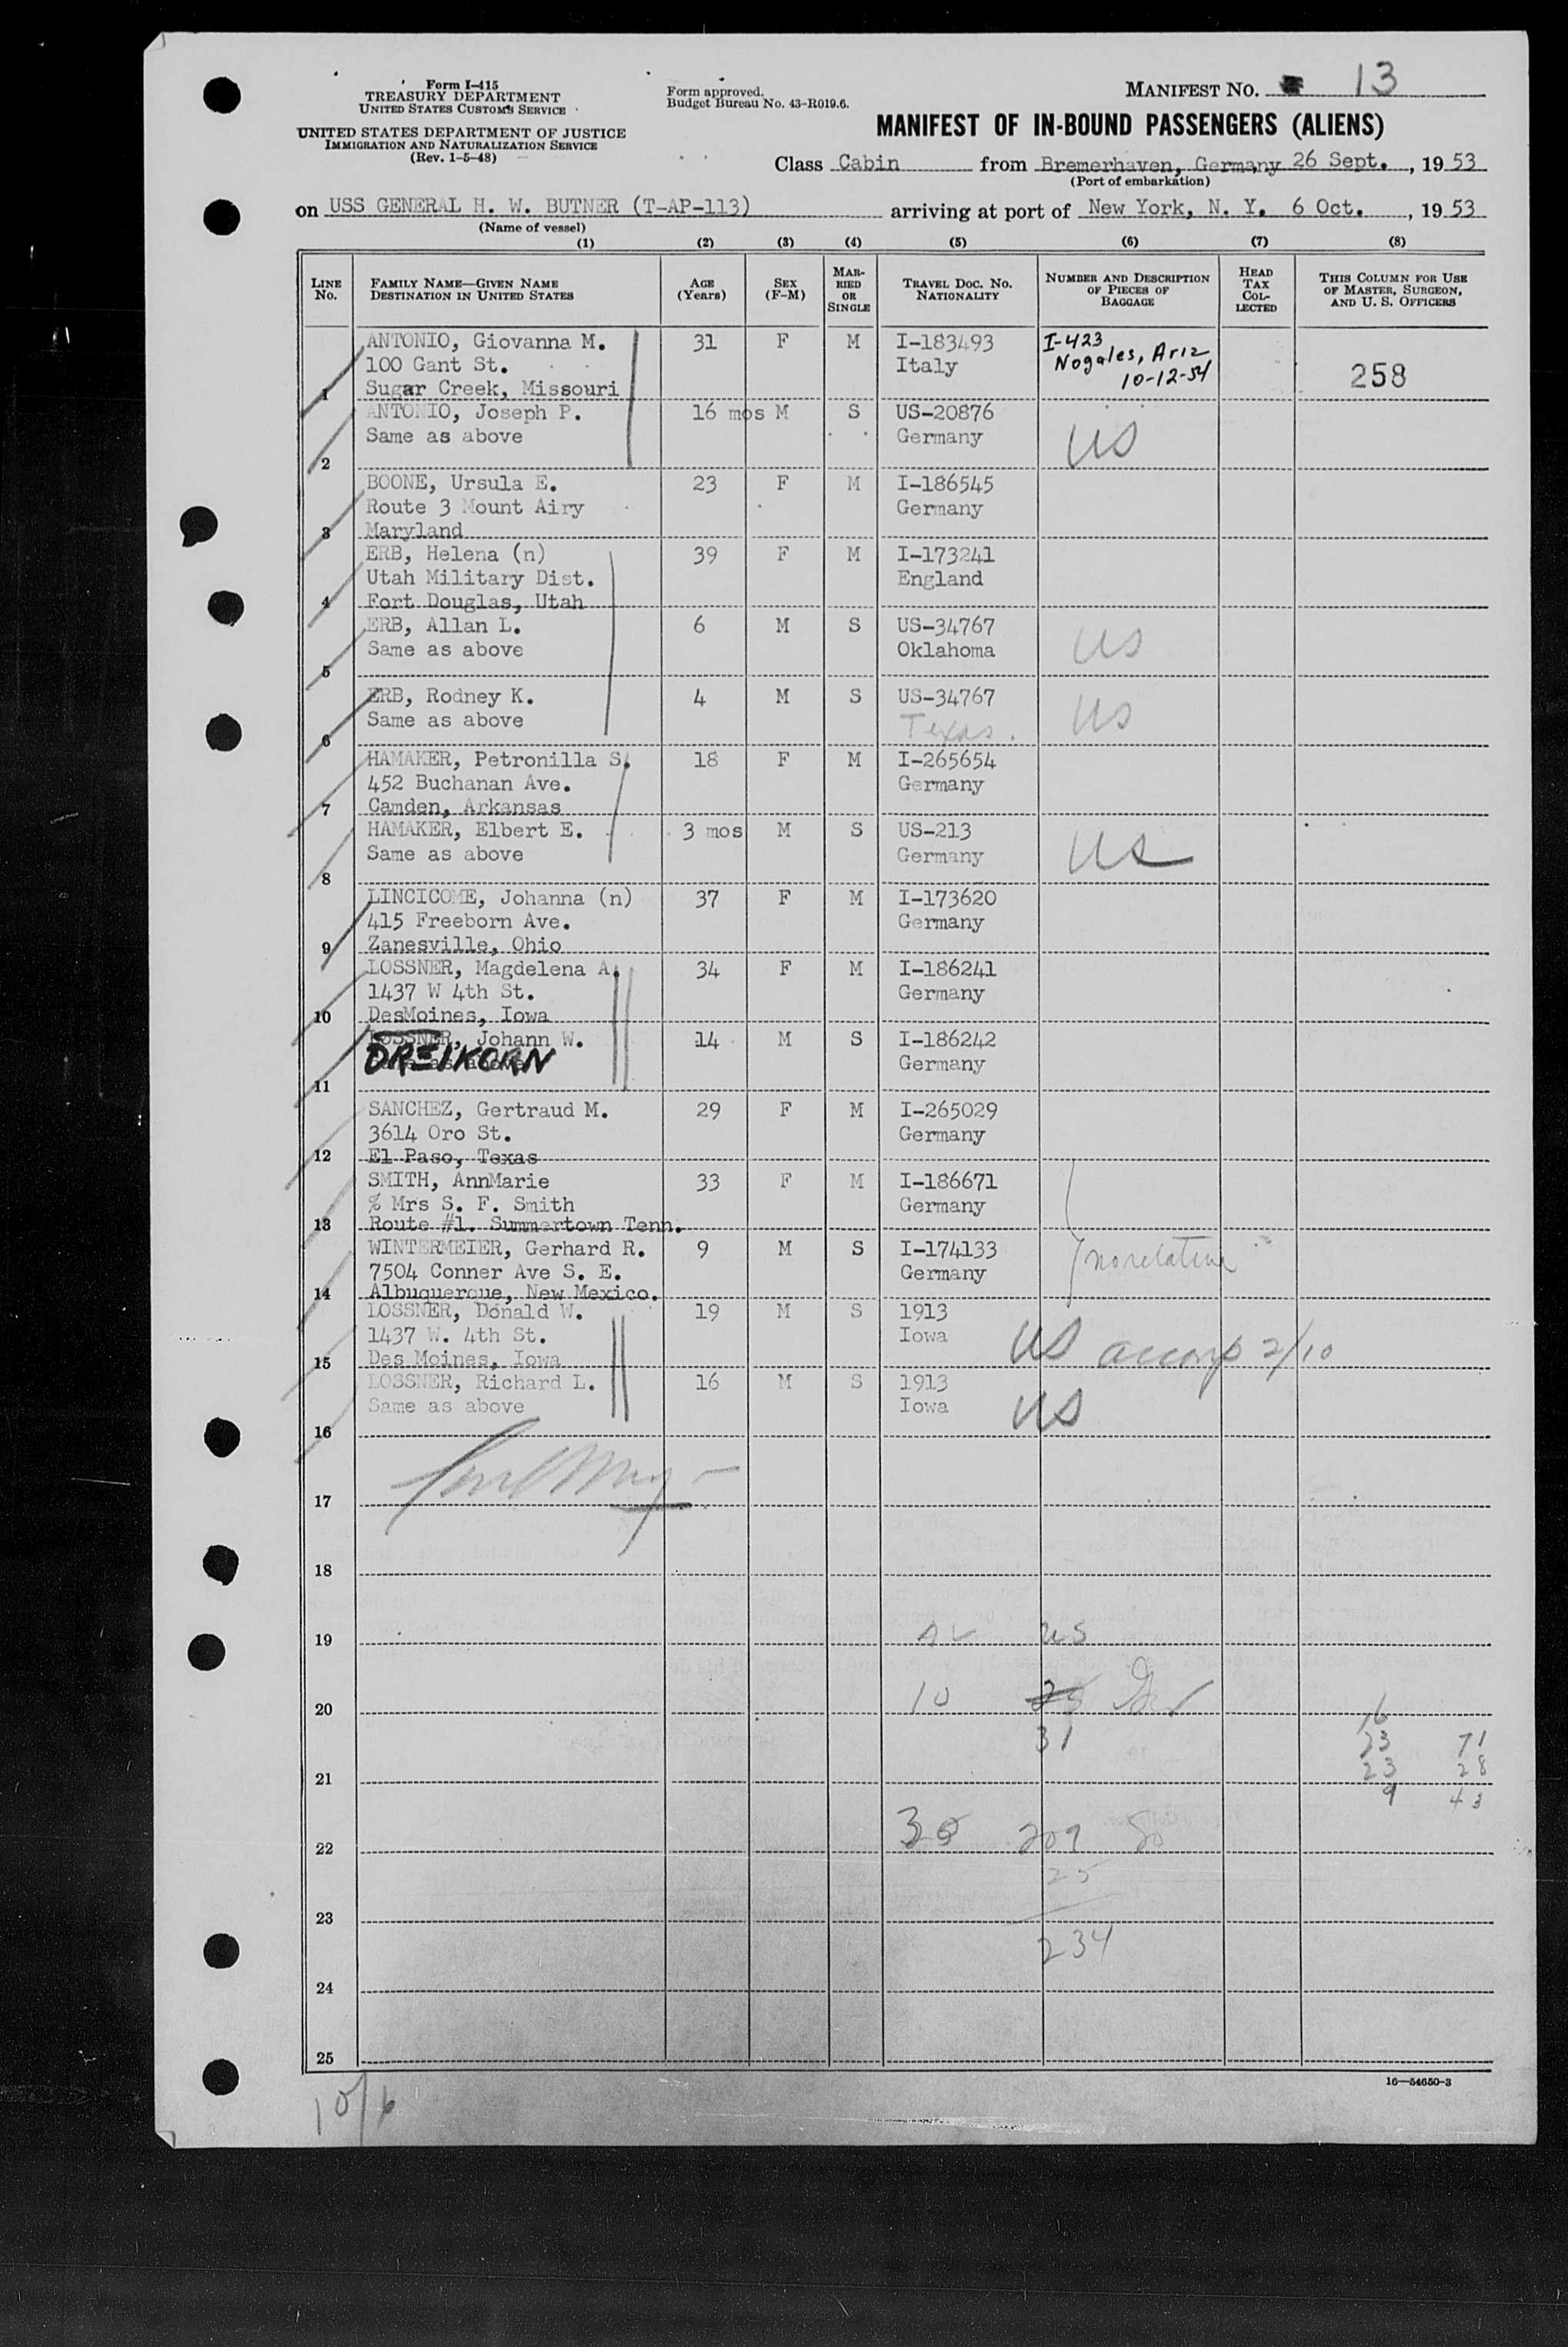 Form I-415
TREASURY DEPARTMENT
UNITED STATES CUSTOMS SERVICE
UNITED STATES DEPARTMENT OF JUSTICE
IMMIGRATION AND NATURALIZATION SERVICE
(Rev. 1-5-48)
Form approved.
Budget Bureau No. 43-R019.6.
MANIFEST NO. 13
MANIFEST OF IN-BOUND PASSENGERS (ALIENS)
Class Cabin from Bremerhaven, Germany 26 Sept., 1953
(Port of embarkation)
on USS GENERAL H. W. BUTNER (T-AP-113) arriving at port of New York, N. Y. 6 Oct., 1953
(Name of vessel)
(1) (2) (3) (4) (5) (6) (7) (8)
LINE No.
FAMILY NAME—GIVEN NAME
DESTINATION IN UNITED STATES
AGE (Years)
SEX (F-M)
MARRIED OR SINGLE
TRAVEL DOC. NO. NATIONALITY
NUMBER AND DESCRIPTION OF PIECES OF BAGGAGE
HEAD TAX COLLECTED
THIS COLUMN FOR USE OF MASTER, SURGEON, AND U. S. OFFICERS
ANTONIO, Giovanna M. 31 F M I-183493 I-423
100 Gant St. Italy Nogales, Ariz
1 Sugar Creek, Missouri 10-12-54 258
ANTONIO, Joseph P. 16 mos M S US-20876
Same as above Germany US
2
BOONE, Ursula E. 23 F M I-186545
Route 3 Mount Airy Germany
3 Maryland
ERB, Helena (n) 39 F M I-173241
Utah Military Dist. England
4 Fort Douglas, Utah
ERB, Allan L. 6 M S US-34767
Same as above Oklahoma US
5
ERB, Rodney K. 4 M S US-34767
Same as above Texas. US
6
HAMAKER, Petronilla S. 18 F M I-265654
452 Buchanan Ave. Germany
7 Camden, Arkansas
HAMAKER, Elbert E. 3 mos M S US-213
Same as above Germany US
8
LINCICOME, Johanna (n) 37 F M I-173620
415 Freeborn Ave. Germany
9 Zanesville, Ohio
LOSSNER, Magdelena A. 34 F M I-186241
1437 W 4th St. Germany
10 DesMoines, Iowa
LOSSNER, Johann W. 14 M S I-186242
DREIKORN Germany
11
SANCHEZ, Gertraud M. 29 F M I-265029
3614 Oro St. Germany
12 El Paso, Texas
SMITH, AnnMarie 33 F M I-186671
% Mrs S. F. Smith Germany
13 Route #1. Summertown Tenn.
WINTERMEIER, Gerhard R. 9 M S I-174133
7504 Conner Ave S. E. Germany no relation
14 Albuquerque, New Mexico.
LOSSNER, Donald W. 19 M S 1913
1437 W. 4th St. Iowa US accomp 2/10
15 Des Moines, Iowa
LOSSNER, Richard L. 16 M S 1913
Same as above Iowa US
16
17
18
19 US
20 10
31
16
33 71
23 28
21
9 43
22 209
25
23
234
24
25
16—54650-3
10/6